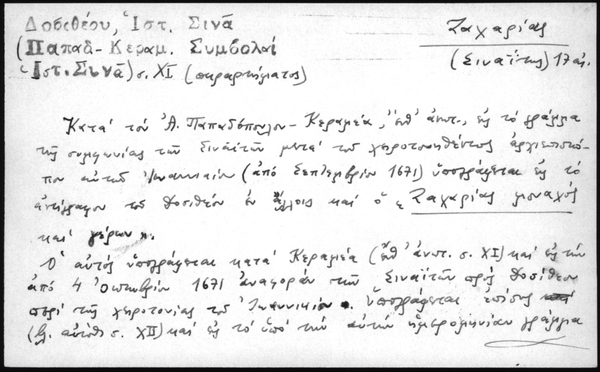 Δοσιθέου, Ἱστ. Σινᾶ
(Παπαδ-Κεραμ. Συμβολαί
Ἱστ. Σινᾶ) σ. XI (παραρτήματος)
Ζαχαρίας
(Σιναΐτης) 17 αἰ.
Κατά τόν Ἀ. Παπαδόπουλον-Κεραμέα, ἔνθ' ἀνωτ., εἰς τό γράμμα
τῆς συμφωνίας τῶν Σιναϊτῶν μετά τοῦ χειροτονηθέντος ἀρχιεπισκό-
που αὐτῶν Ἰωαννικίου (ἀπό Σεπτεμβρίου 1671) ὑπογράφεται εἰς τό
ἀντίγραφον τοῦ Δοσιθέου ἐν ἄλλοις καί ὁ "Ζαχαρίας μοναχός
καί γέρων".
Ὁ αὐτός ὑπογράφεται κατά Κεραμέα (ἔνθ' ἀνωτ. σ. XI) καί εἰς τήν
ἀπό 4 Ὀκτωβρίου 1671 ἀναφοράν τῶν Σιναϊτῶν πρός Δοσίθεον
περί τῆς χειροτονίας τοῦ Ἰωαννικίου. ὑπογράφεται ἐπίσης
(βλ. αὐτόθι σ. XII) καί εἰς τό ὑπό τήν αὐτήν ἡμερομηνίαν γράμμα